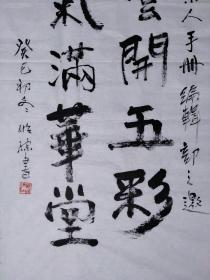 人手册编辑部之邀
雲開五彩
氣滿華堂
癸巳初冬